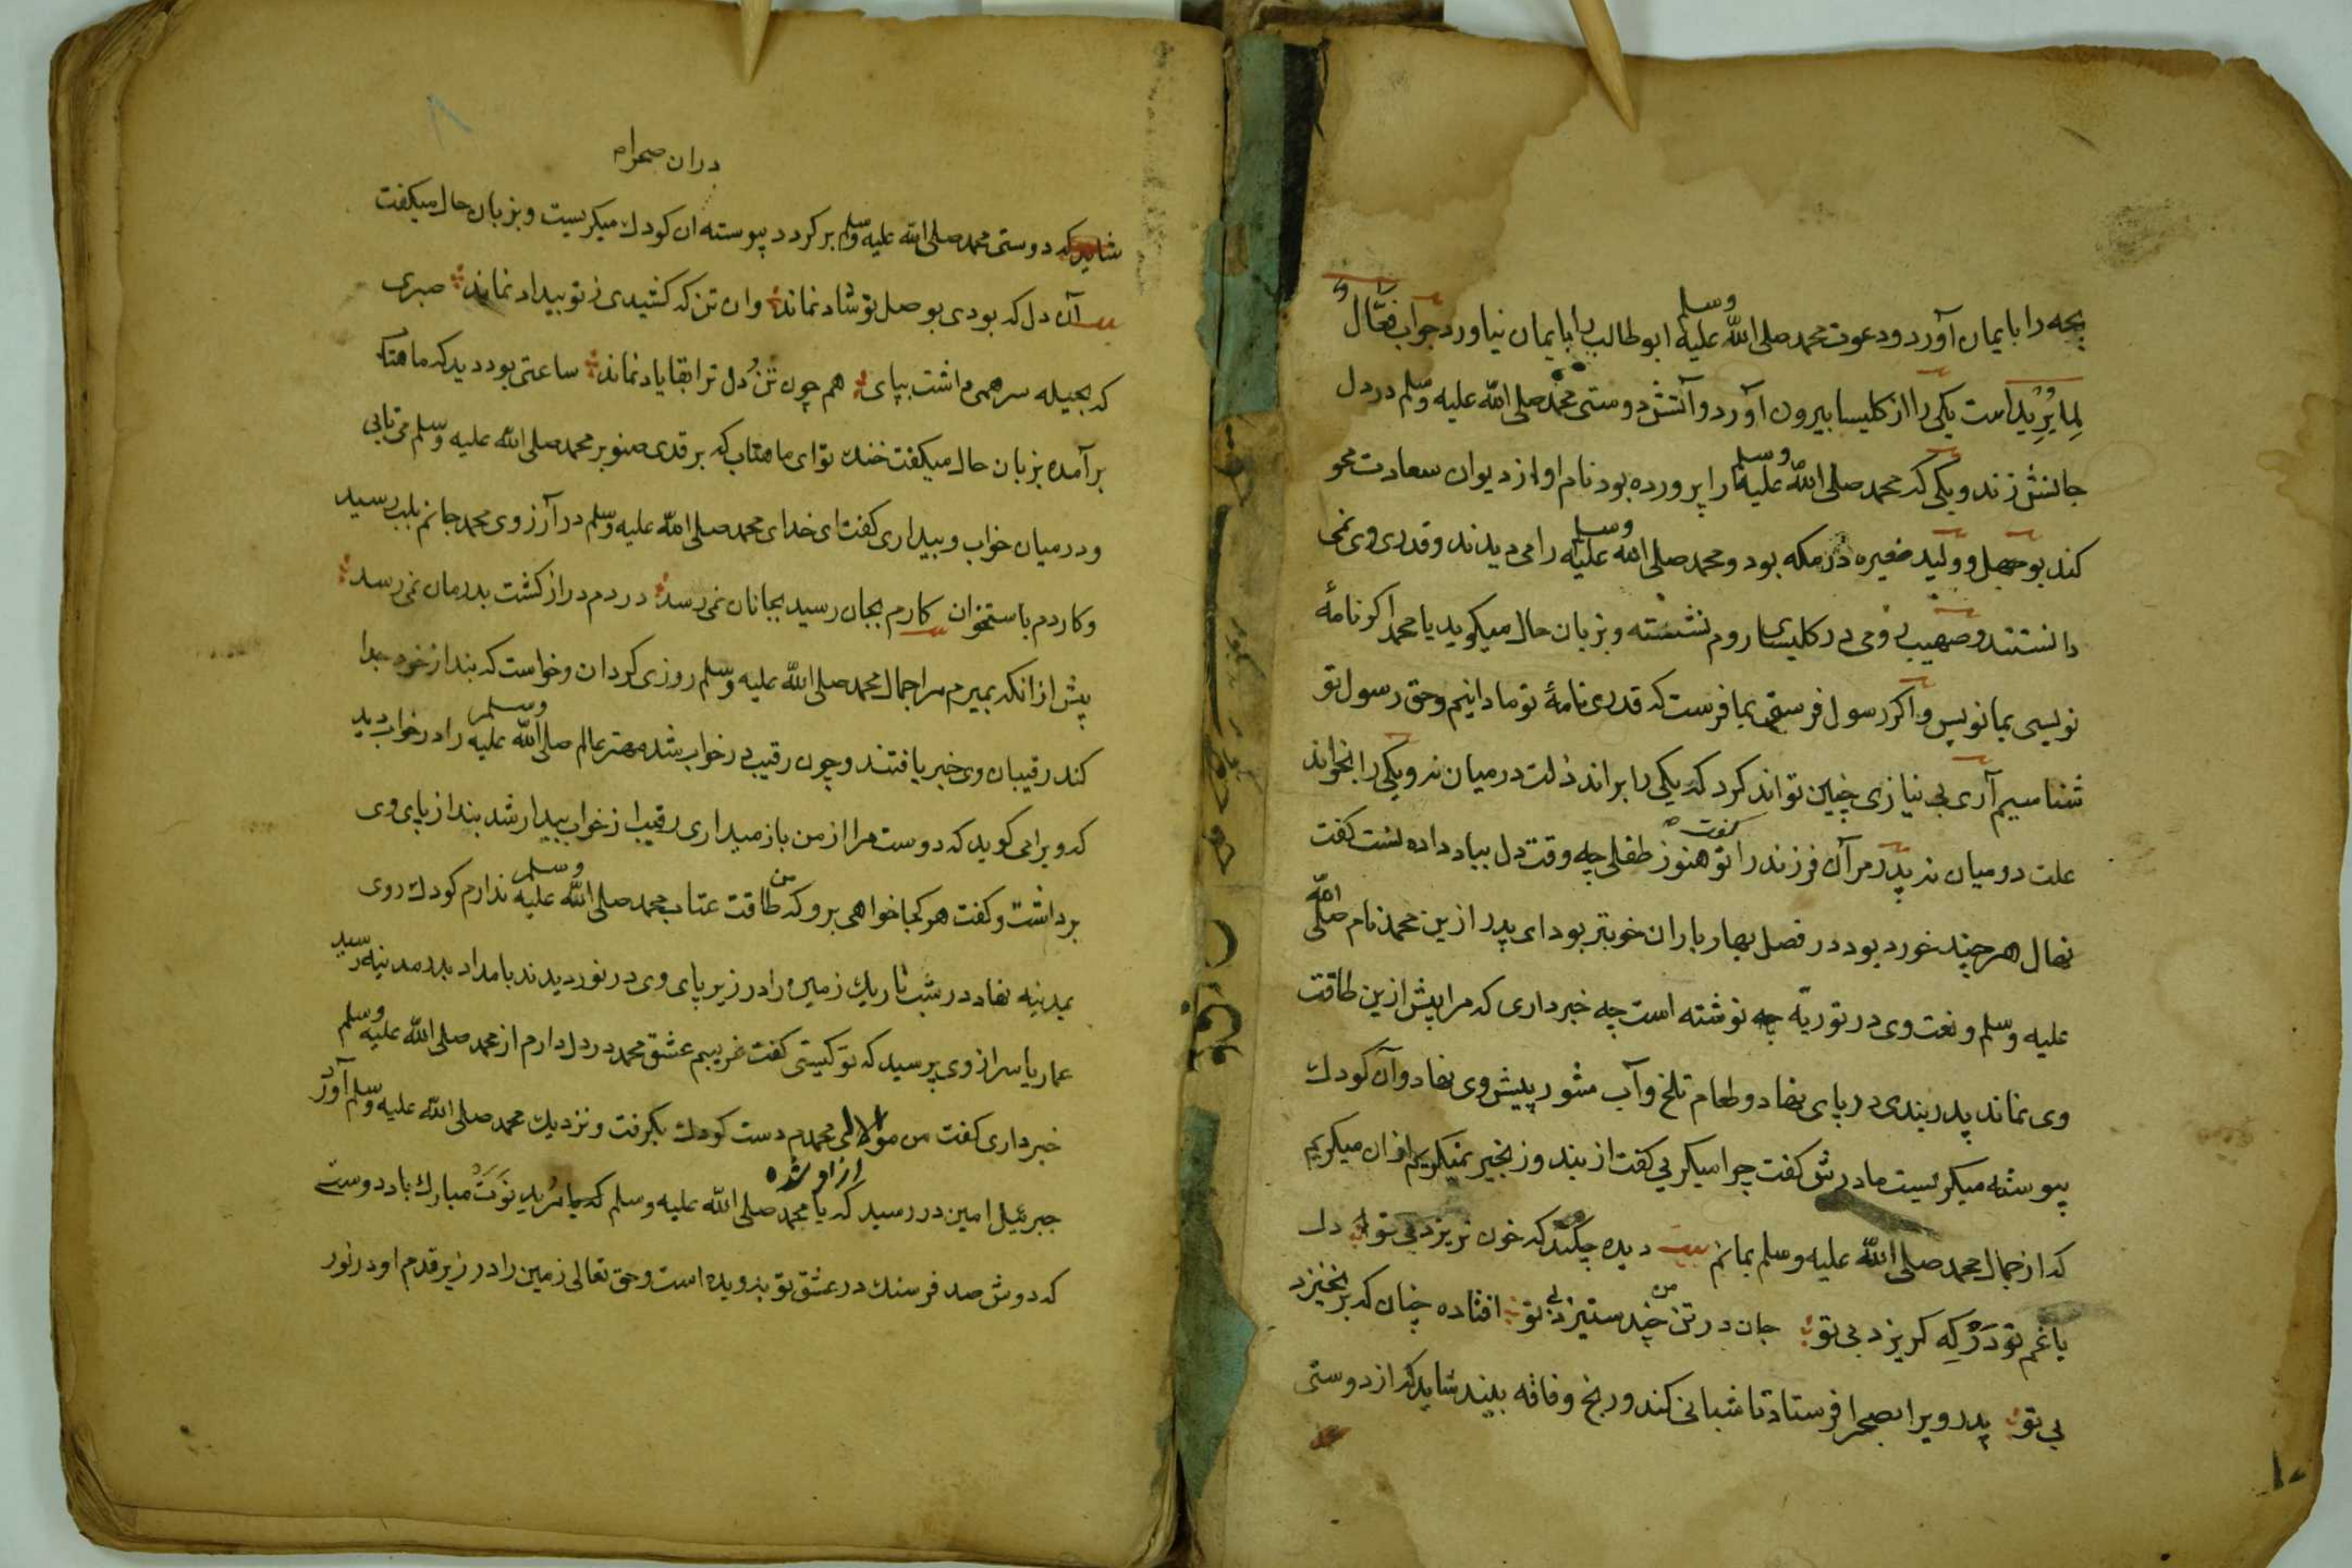 بچه را بایمان آورد و دعوت محمد صلی الله علیه وسلم ابوطالب را بایمان نیاورد جواب فعّال
لِما یُرِید است یکی را از کلیسا بیرون آورد و آتش دوستی محمد صلی الله علیه وسلم در دل
جانش زند و یکی که محمد صلی الله علیه وسلم را پرورده بود نام او از دیوان سعادت محو
کند بوجهل و ولید مغیره در مکه بود و محمد صلی الله علیه وسلم را می دیدند و قدر وی نمی
دانستند و صهیب رومی در کلیسای روم نشسته و بزبان حال میکوید یا محمد اکر نامهٔ
نویسی بما نویس و اکر رسول فرستی بما فرست که قدر نامهٔ تو ما دانیم و حق رسول تو
شناسیم آری بی نیازی چنین تواند کرد که یکی را براند ذلت در میان نه و یکی را بخواند
علت در میان نه پدر مر آن فرزند را کفت تو هنوز طفلی چه وقت دل بباد داده نست کفت
نهال هر چند خورد بود در فصل بهار باران خوبتر بود ای پدر ازین محمد نام صلی الله
علیه وسلم و نعت وی در توریة چه نوشته است چه خبر داری که مرا پیش ازین طاقت
وی نماند پدر بندی در پای نهاد و طعام تلخ و آب شور پیش وی نهاد و آن کودك
پیوسته میکریست مادرش کفت چرا میکریی کفت از بند و زنجیر نمیکریم از ان میکریم
که از جمال محمد صلی الله علیه وسلم بمانم بیت دیده چکند که خون نریزد بی تو دل
با غم تو دَرْ که کریزد بی تو جان در تن من چند ستیزد بی تو افتاده چنان که برنخیزد
بی تو پدر ویرا بصحرا فرستاد تا شبانی کند و رنج و فاقه بیند شاید که از دوستی
دران صحرا
شاید که دوستی محمد صلی الله علیه وسلم بر کردد پیوسته ان کودك میکریست و بزبان حال میکفت
بیت آن دل که بودی بوصل تو شاد نماند وان تن که کشیدی ز تو بیداد نماند صبری
که بحیله سر همی داشت بپای هم چون دل ترا بقا یاد نماند ساعتی بود دید که ماهتاب
برآمده بزبان حال میکفت خنك تو ای ماهتاب که بر قدی صنوبر محمد صلی الله علیه وسلم می تابی
و در میان خواب و بیداری کفت ای خدای محمد صلی الله علیه وسلم در آرزوی محمد جانم بلب رسید
و کاردم باستخوان بیت کارم بجان رسید بجانان نمی رسد دردم دراز کشت بدرمان نمی رسد
پیش از انکه بمیرم مرا جمال محمد صلی الله علیه وسلم روزی کردان و خواست که بند از خود جدا
کند رقیبان وی خبر یافتند و چون رقیب در خواب شد مهتر عالم صلی الله علیه وسلم را در خواب دید
که ویرا می کوید که دوست مرا از من باز میداری رقیب از خواب بیدار شد بند از پای وی
برداشت و کفت هر کجا خواهی برو که من طاقت عتاب محمد صلی الله علیه وسلم ندارم کودك روی
بمدینه نهاد در شب تاریك زمین را در زیر پای وی در نوردیدند بامداد بدر مدینه رسید
عمار یاسر از وی پرسید که تو کیستی کفت غریبم عشق محمد در دل دارم از محمد صلی الله علیه وسلم
خبر داری کفت من مولای محمدم دست کودك بکرفت و نزدیك محمد صلی الله علیه وسلم آورد
ازاد شده
جبرئیل امین در رسید که یا محمد صلی الله علیه وسلم که مرید نوت مبارك باد دوست
که دوش صد فرسنك در عشق تو بدویده است و حق تعالی زمین را در زیر قدم او در نور